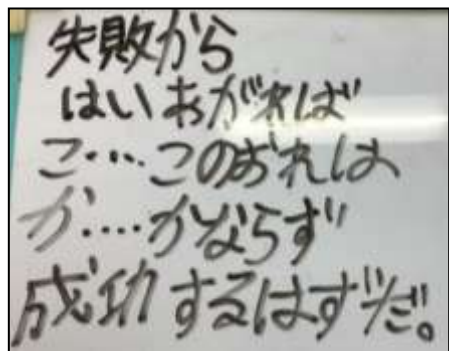 失敗から
はいあがれば
こ…このおれは
か‥‥かならず
成功するはずだ。